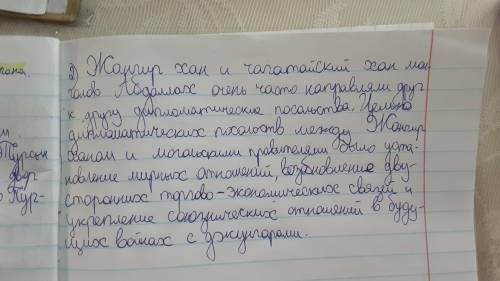 пана.
м
Турсын
двор
Тур-
2) Жангир хан и чагатайский хан мо-
голов Абдаллах очень часто направляли друг
к другу дипломатические посольства. Целью
дипломатических посольств между Жангир
ханом и могольскими правителями было уста-
новление мирных отношений, возобновление дву-
сторонних торгово-экономических связей и
укрепление союзнических отношений в буду-
щих войнах с джунгарами.